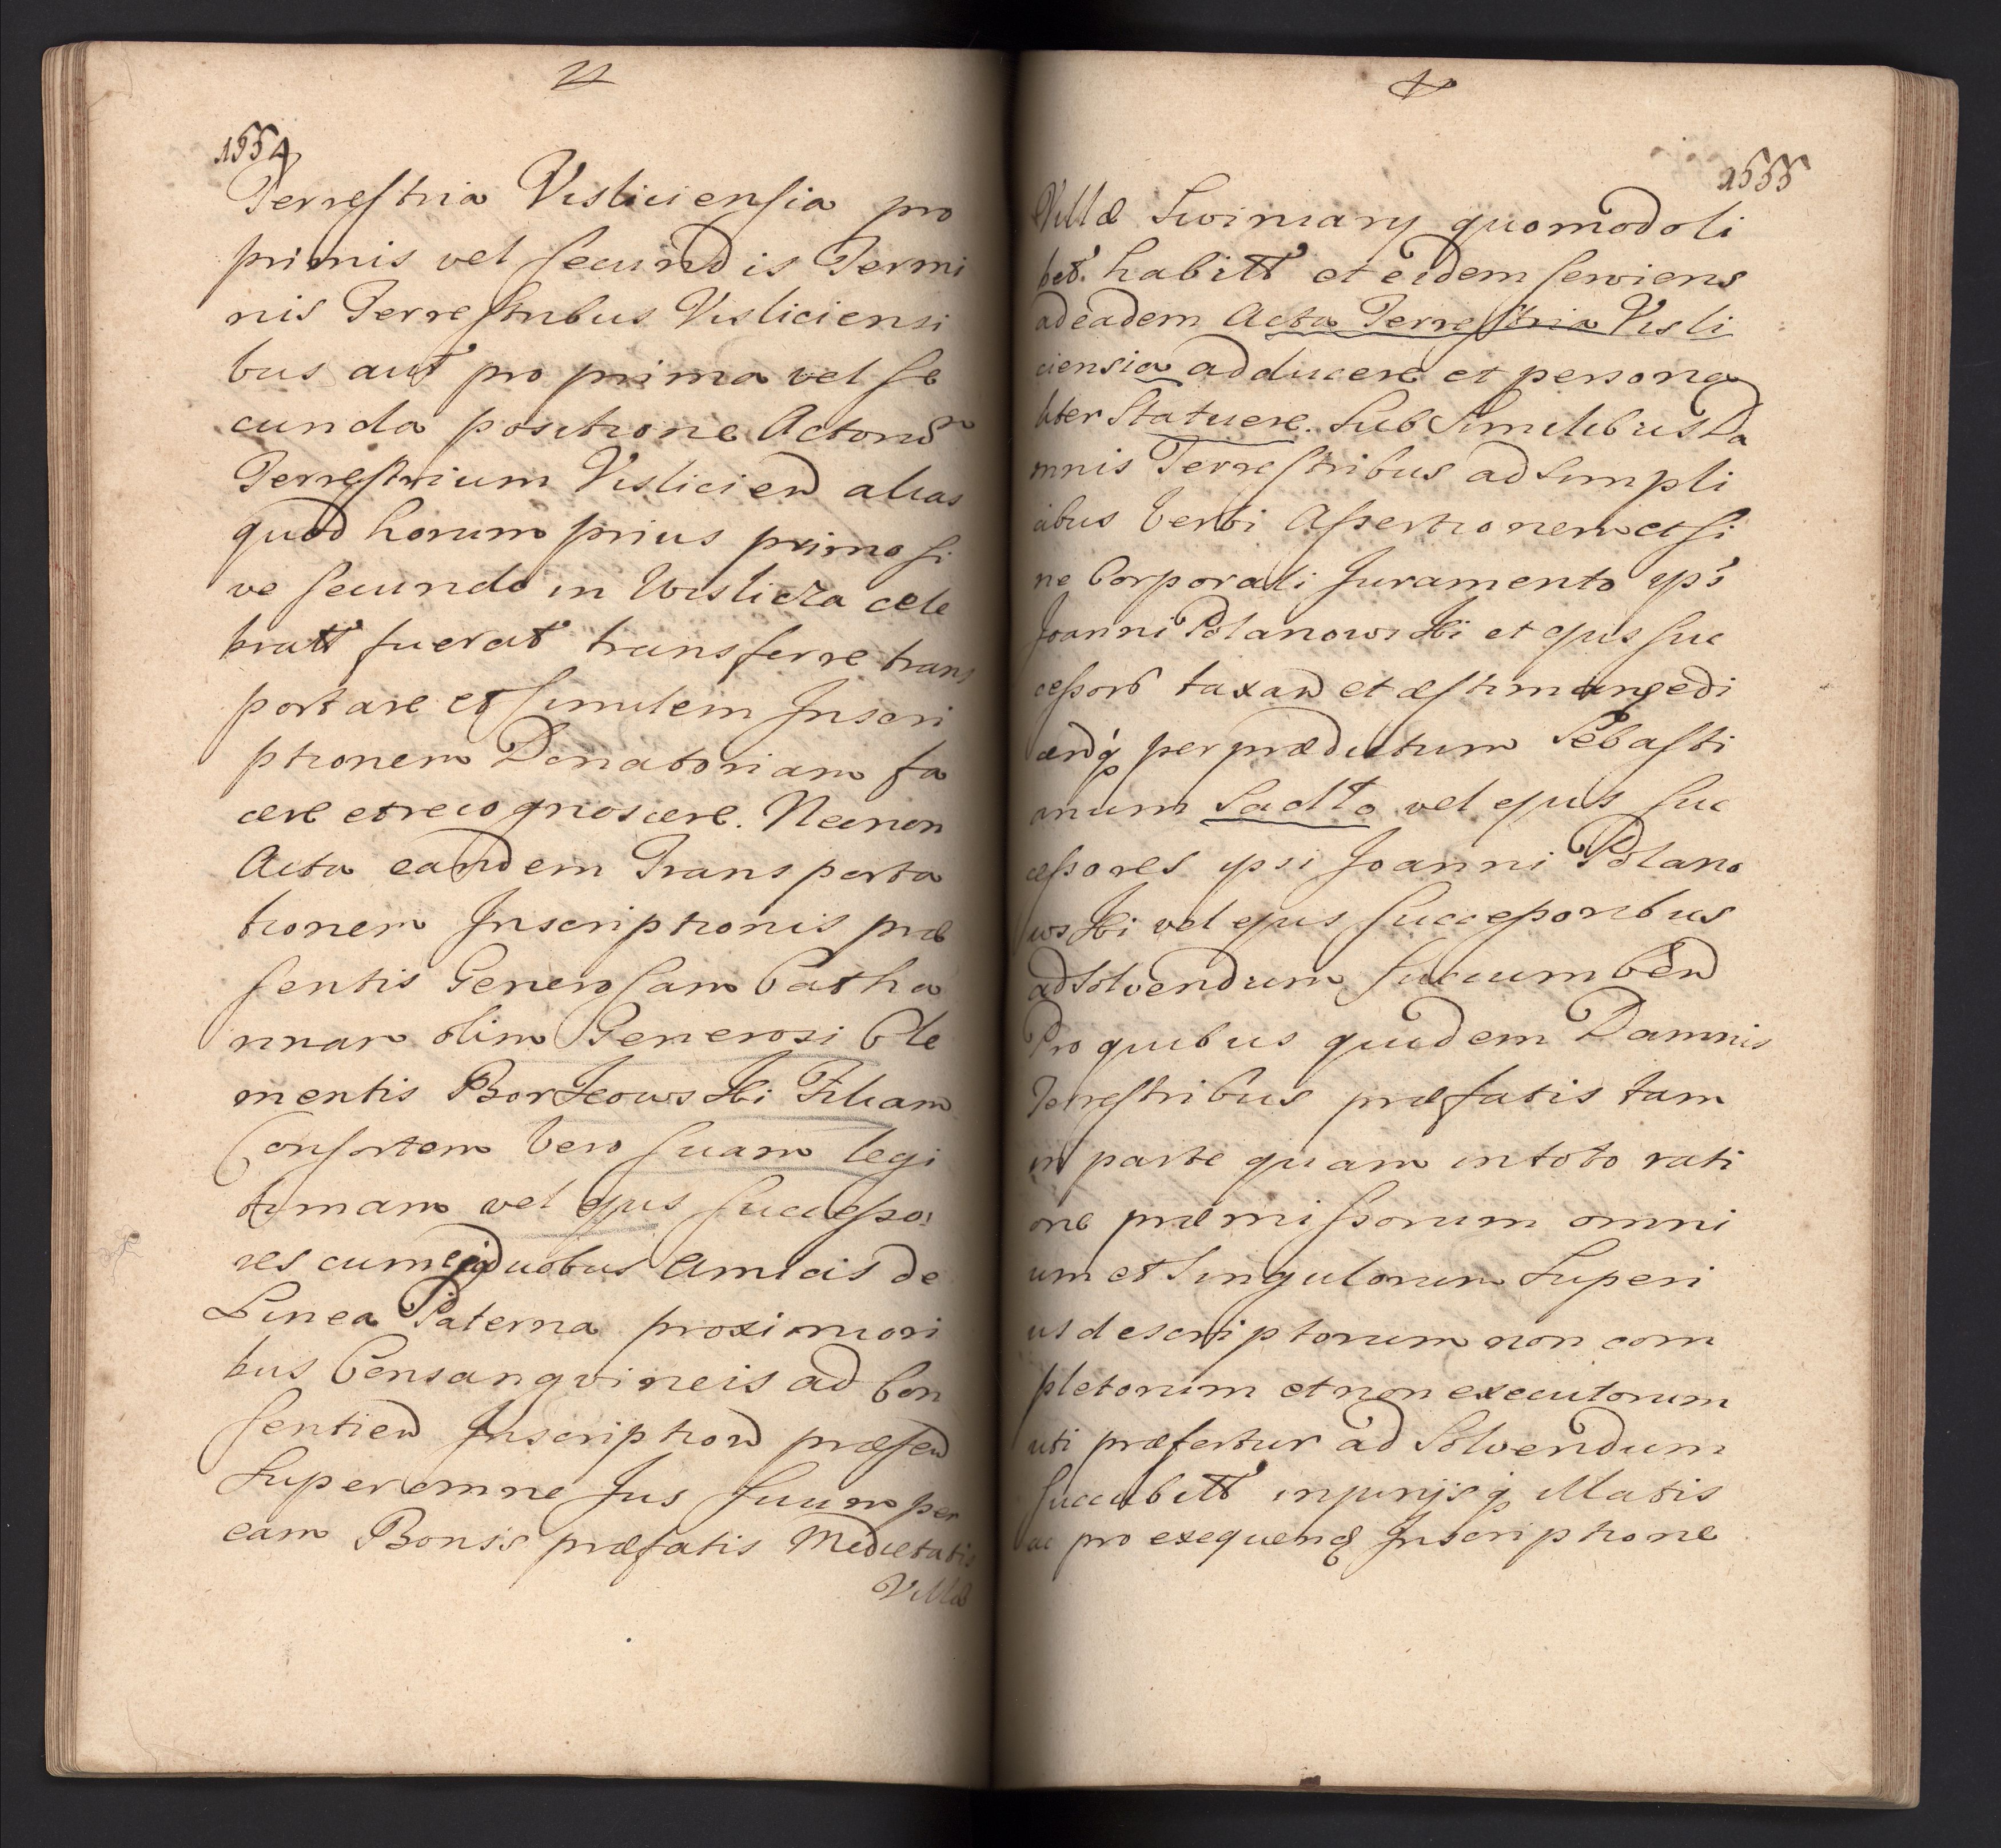 1554
Terrestria Visliciensia pro
primis vel secundis Termi
nis Terrestribus Visliciensi
bus aut pro prima vel se
cunda positione Actoru
Terrestrium Vislicien alias
quod horum prius primo si
ve secundo in Wislicza cele
bratt fuerat transferre trans
portare et similem Inscri
ptionem Donatoriam fa
cere et recognoscere. Necnon
Acta eandem Transporta
tionem Inscriptionis præ
sentis Generosam Catha
rinnam olim Generosi Cle
mentis Borzeowski Filiam
Consortem vero suam legi
timam vel ejus successo
res cum duobus Amicis de
Linea Paterna proximiori
bus Consangvineis ad Con
sentien Inscription præsen
Super omne Jus suum per
eam Bonis præfatis Medietatis
Villæ
1555
Villæ Swiniary quomodoli
bet. habitt et eidem serviens
ad eadem Acta Terrestria Visli
ciensia adducere et persona
liter Statuere. Sub Similibus Da
mnis Terrestribus ad Simpli
cibus Verbi Assertionem et si
ne Corporali Juramento ips
Joanni Polanowski et ejus suc
cessorb taxan et æstiman edi
cendq per prædictum Sebasti
anum Sadło vel ejus suc
cessores ipsi Joanni Polano
wski vel ejus successoribus
ad Solvendum succumben
Pro quibus quidem Damnis
Terrestribus præfatis tam
in parte quam in toto rati
one præmissorum omni
um et Singulorum Superi
us descriptorum non com
pletorum et non executorum
uti præfertur ad Solvendum
succubitt injurijsq Matis
ac pro exequenq Inscriptione